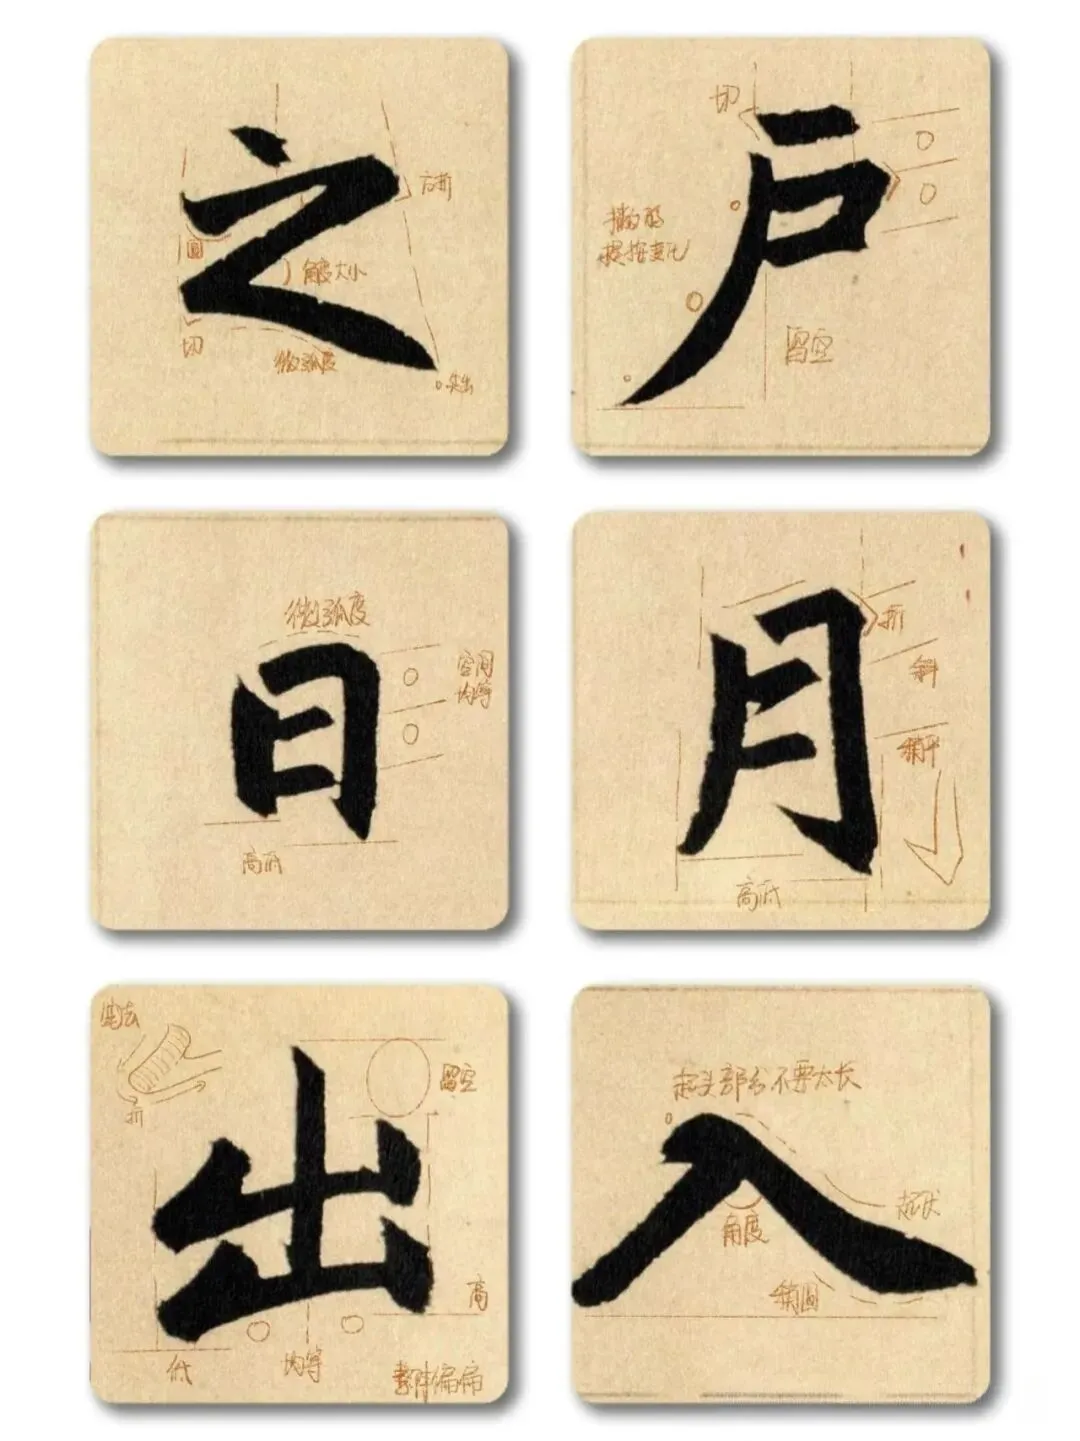 之
方折
圆
角度大小
切
微弧度
尖出
户
切
撇的
提按变化
留空
日
微弧度
空间
均等
高低
月
折
斜
稍平
高低
出
笔法
折
留空
高
低
均等
整体偏扁
入
起头部分不要太长
起伏
角度
稍圆